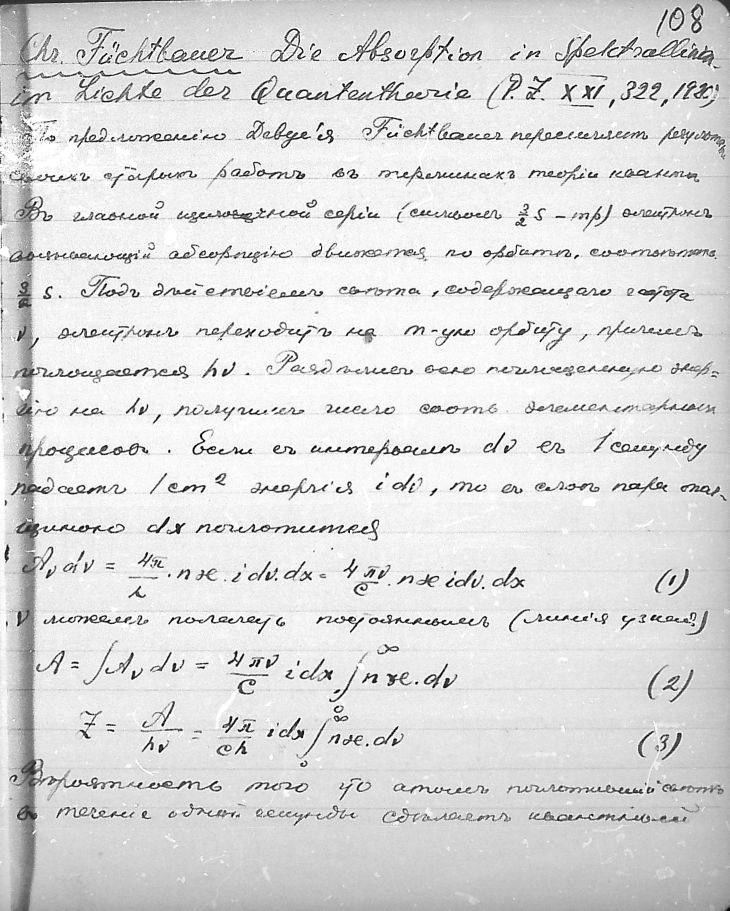 108
Chr. Füchtbauer Die Absorption in Spektrallinien
im Lichte der Quantentheorie (P. Z. XXI, 322, 1920)
По предложенію Дебуе'я Füchtbauer перечисляетъ результаты
своихъ старыхъ работъ въ терминахъ теоріи квантъ
Въ главной щелочной серіи (символъ 3/2 s – mp) электронъ
абсорпцію движется по орбитѣ,
3/2 s. Подъ дѣйствіемъ свѣта, содержащаго частота
ν, электронъ переходитъ на m-ую орбиту, причемъ
поглощается hν. Раздѣливъ всю поглощенную энер-
гію на hν, получимъ число соотв. элементарныхъ
процессовъ. Если въ интервалѣ dν въ 1 секунду
падаетъ 1 cm² энергія i dν, то въ слоѣ пара тол-
щиною dx поглотится
Aν dν = 4π/λ · nϰ · i dν. dx = 4πν/c · nϰ i dν. dx (1)
ν можемъ полагать постояннымъ (линія узкая)
A = ∫Aν dν = 4πν/c i dx ∫₀^∞ nϰ. dν (2)
Z = A/hν = 4π/ch i dx ∫₀^∞ nϰ. dν (3)
Вѣроятность того что атомъ поглотившій свѣтъ
въ теченіе одной секунды сдѣлаетъ квантовый